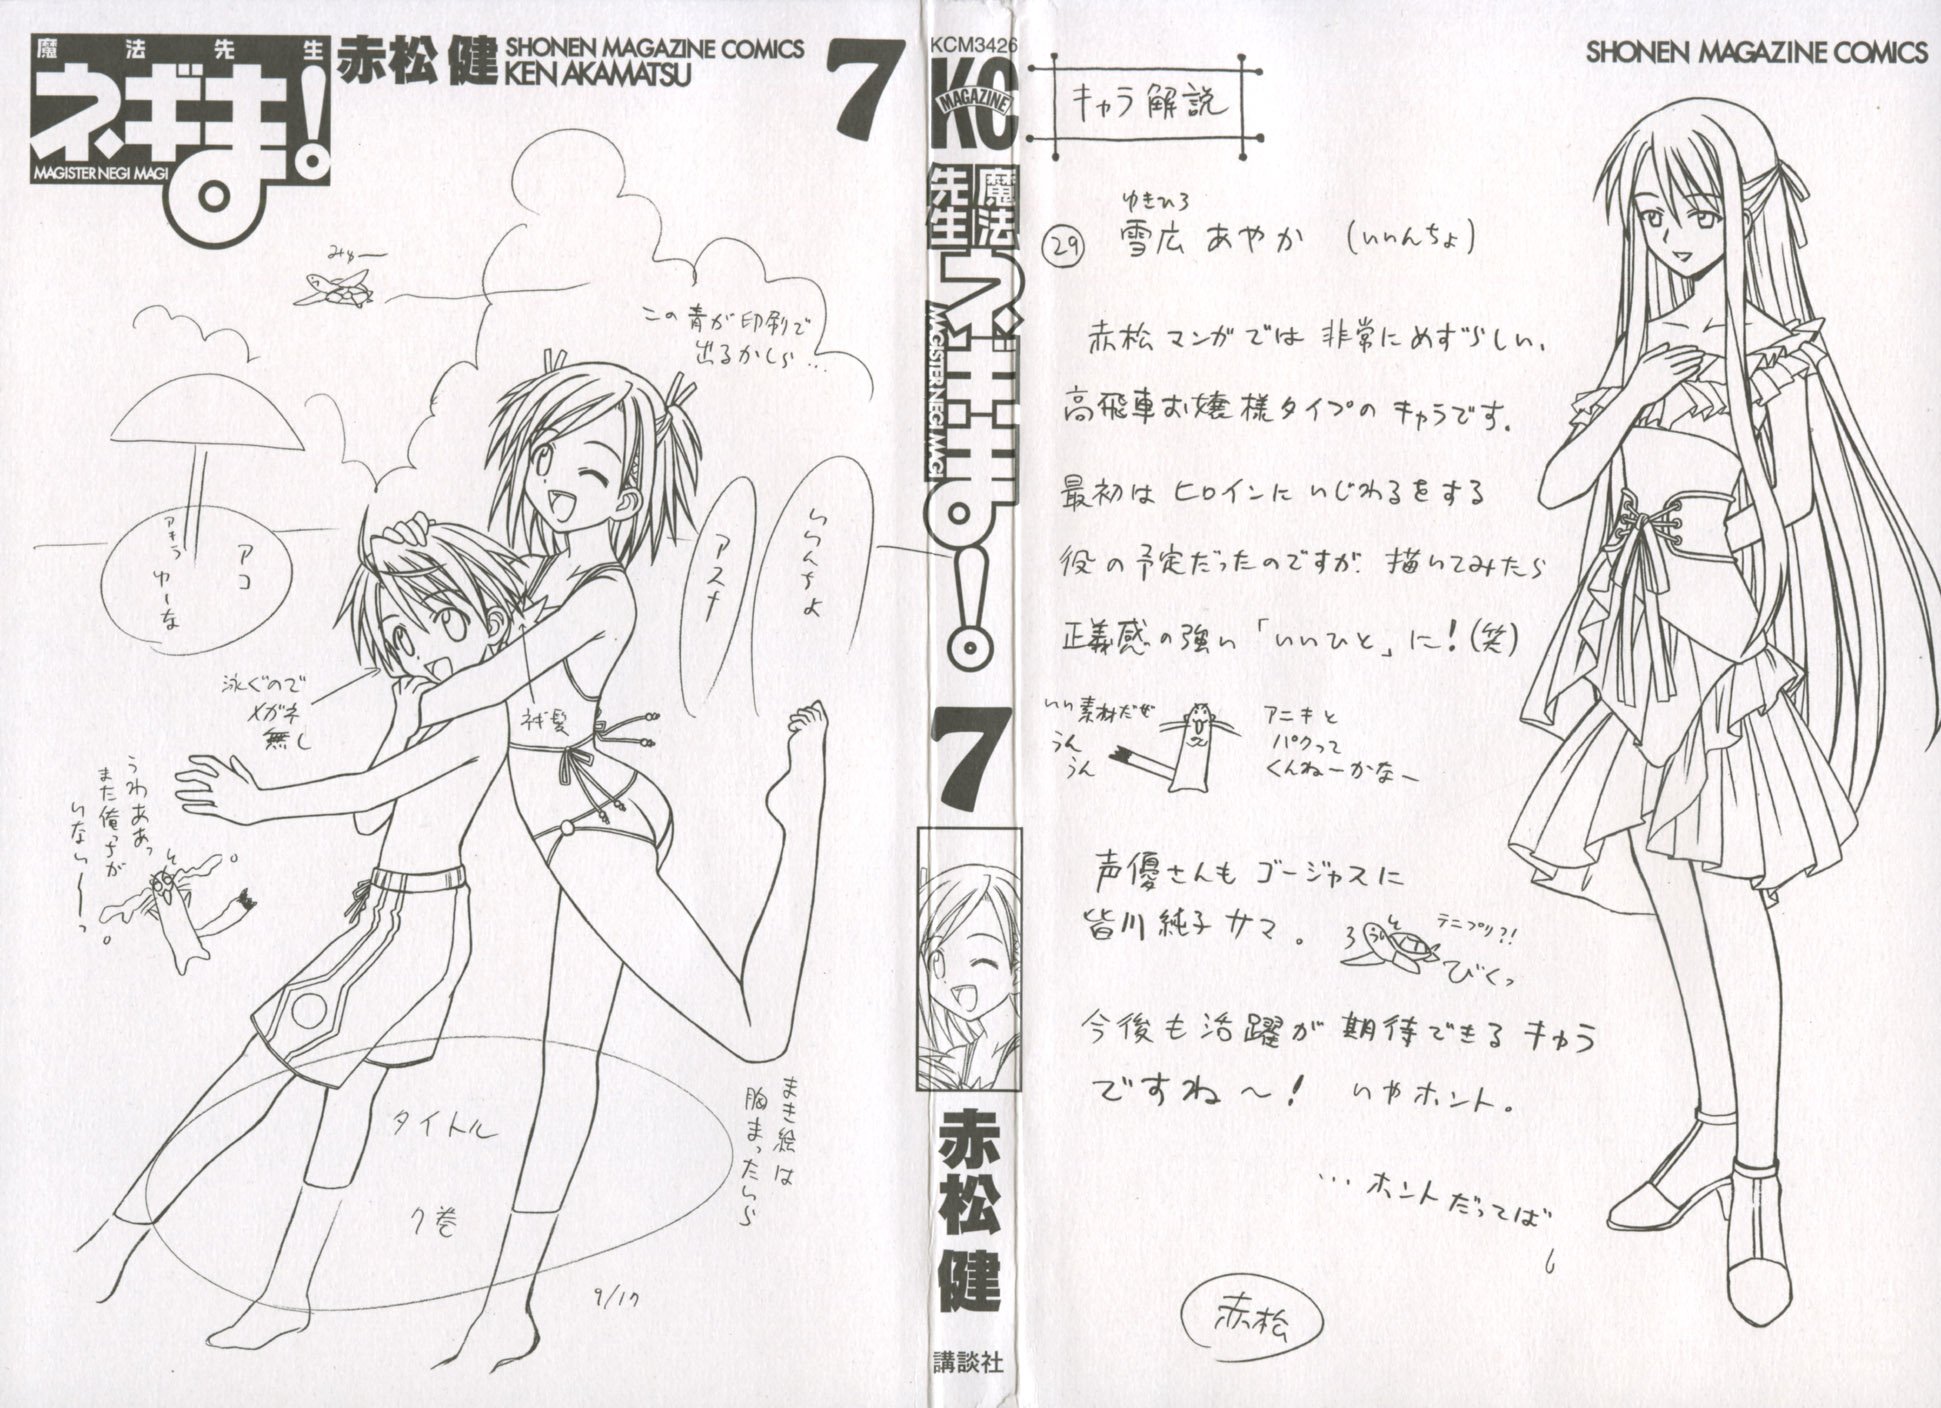 魔法先生
ネギま!
MAGISTER NEGI MAGI
赤松健
SHONEN MAGAZINE COMICS
KEN AKAMATSU
7
みゅー
この青が印刷で
出るかしら…
アコ
アキラ
ゆーな
いいんちょ
アスナ
泳ぐので
メガネ
無し
うわああっ
また俺っちが
いない〜〜っ
タイトル
7巻
9/17
まき絵は
胸まったいら
KCM3426
KC
MAGAZINE
魔法先生
ネギま!
MAGISTER NEGI MAGI
7
赤松健
講談社
SHONEN MAGAZINE COMICS
キャラ解説
ゆきひろ
29 雪広あやか (いいんちょ)
赤松マンガでは非常にめずらしい、
高飛車お嬢様タイプのキャラです。
最初はヒロインにいじわるをする
役の予定だったのですが、描いてみたら
正義感の強い「いいひと」に!(笑)
いい素材だぜ
うん
うん
アニキと
パクって
くんねーかなー
声優さんもゴージャスに
皆川純子サマ。
テニプリ?!
びくっ
今後も活躍が期待できるキャラ
ですね〜! いやホント。
…ホントだってば
赤松